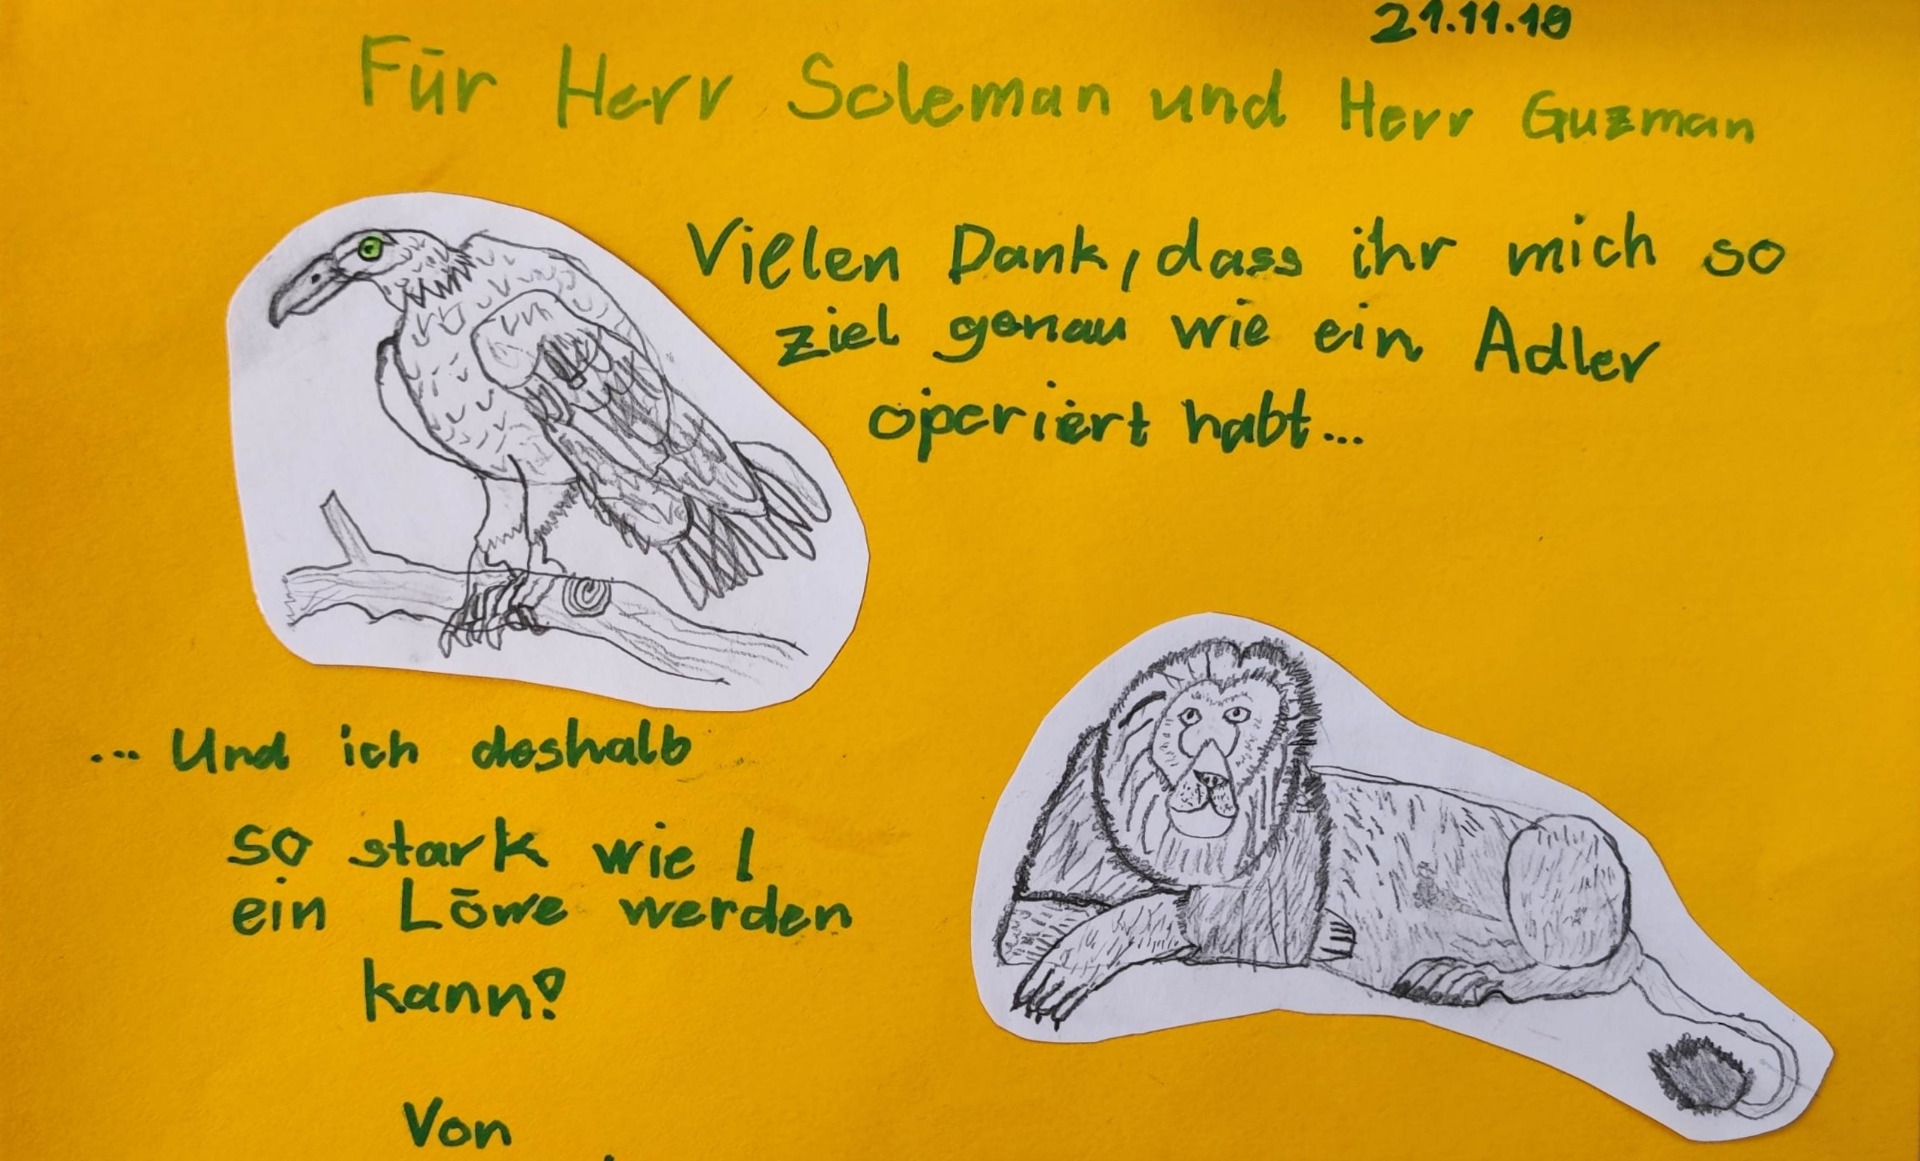 21.11.18
Für Herr Soleman und Herr Guzman
Vielen Dank, dass ihr mich so
ziel genau wie ein Adler
operiert habt...
... Und ich deshalb
so stark wie
ein Löwe werden
kann!
Von